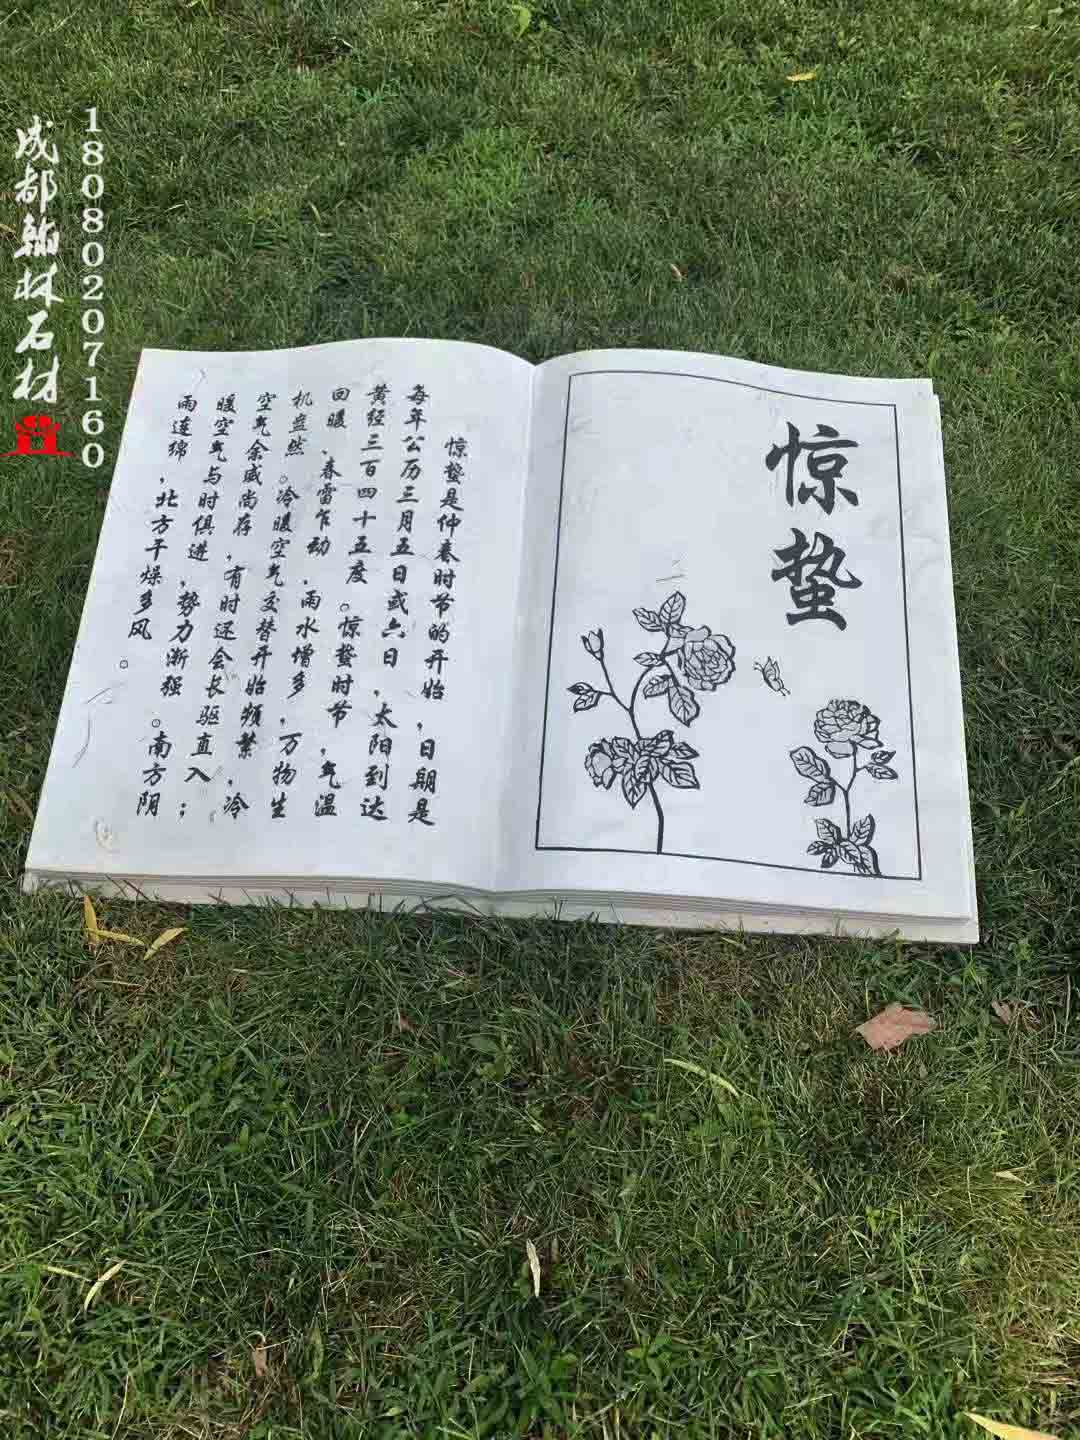 惊蛰
惊蛰是仲春时节的开始，日期是
每年公历三月五日或六日，太阳到达
黄经三百四十五度。惊蛰时节，气温
回暖、春雷乍动、雨水增多，万物生
机盎然。冷暖空气交替开始频繁，冷
空气余威尚存，有时还会长驱直入；
暖空气与时俱进，势力渐强。南方阴
雨连绵，北方干燥多风。
18080207160
成都翰林石材